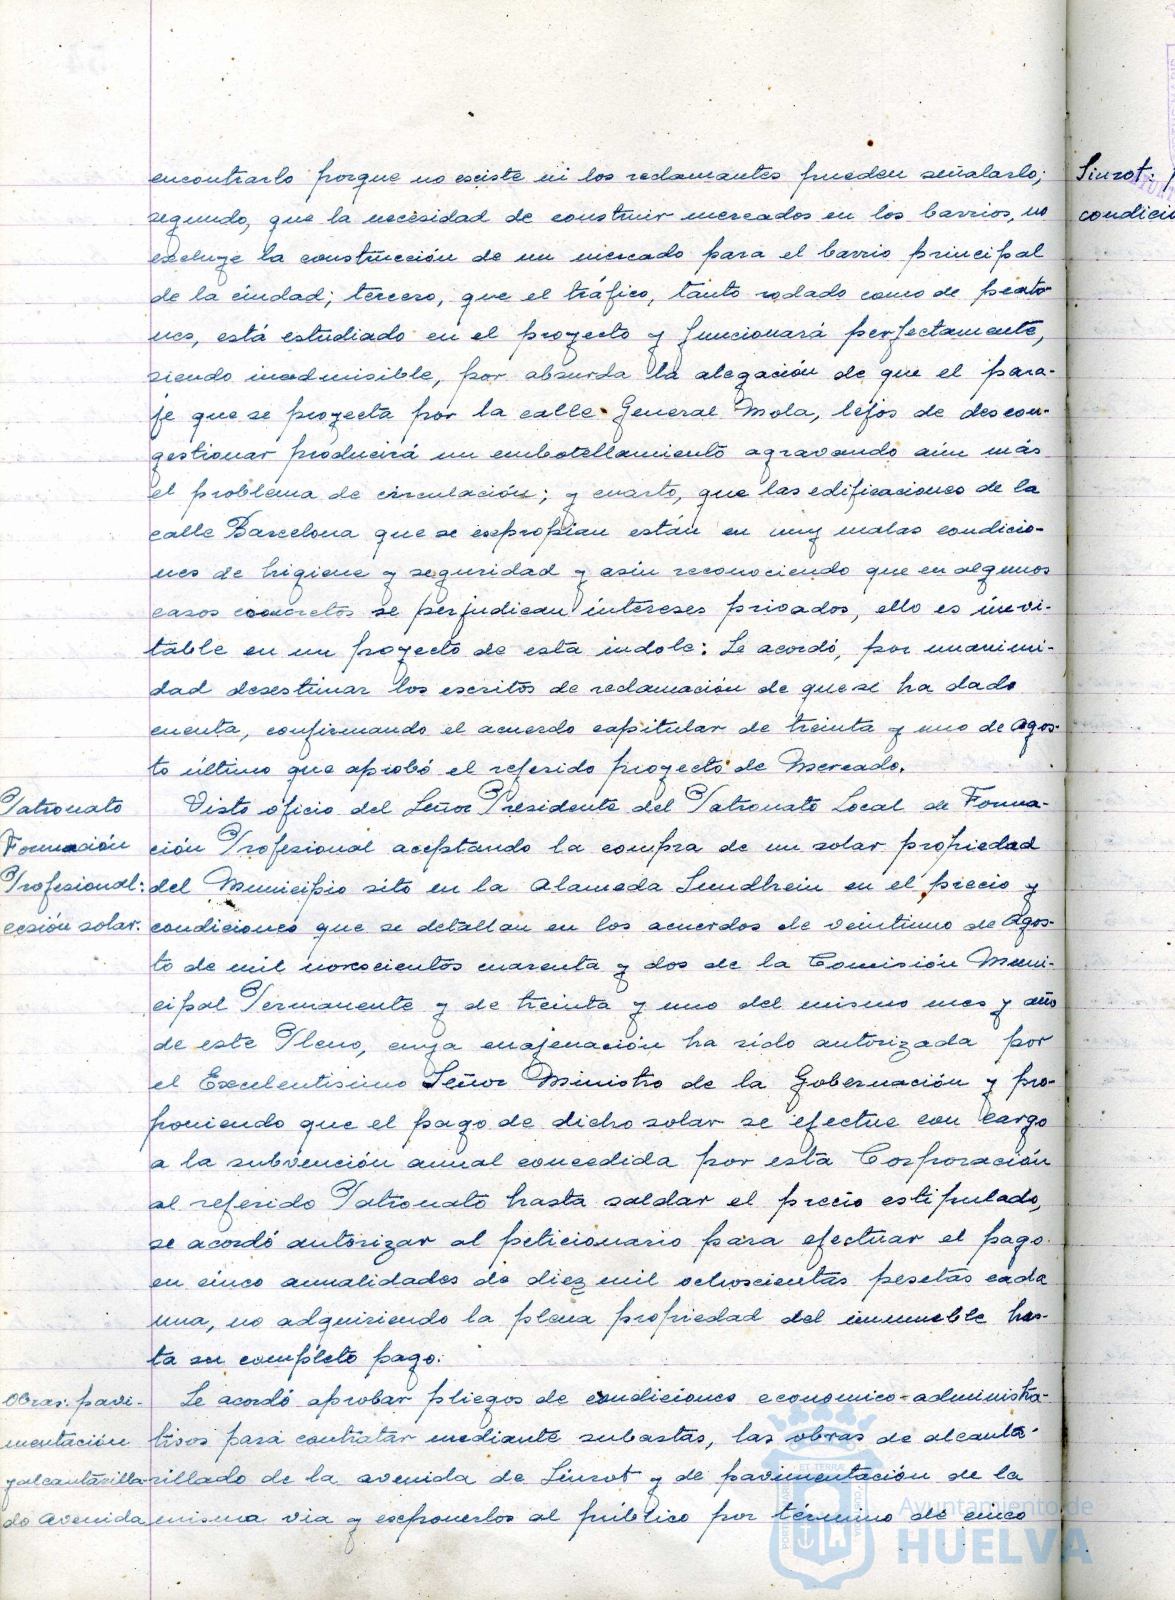 encontrarlo porque no existe ni los reclamantes pueden señalarlo;
segundo, que la necesidad de construir mercados en los barrios, no
excluye la construcción de un mercado para el barrio principal
de la ciudad; tercero, que el tráfico, tanto rodado como de peato-
nes, está estudiado en el proyecto y funcionará perfectamente,
siendo inadmisible, por absurda la alegación de que el para-
je que se proyecta por la calle General Mola, lejos de descon-
gestionar producirá un embotellamiento agravando aún más
el problema de circulación; y cuarto, que las edificaciones de la
calle Barcelona que se expropian están en muy malas condicio-
nes de higiene y seguridad y aún reconociendo que en algunos
casos concretos se perjudican intereses privados, ello es inevi-
table en un proyecto de esta indole: Se acordó, por unanimi-
dad desestimar los escritos de reclamación de que se ha dado
cuenta, confirmando el acuerdo capitular de treinta y uno de Agos-
to último que aprobó el referido proyecto de Mercado.
Patronato
Formación
Profesional:
cesión solar.
Visto oficio del Señor Presidente del Patronato Local de Forma-
ción Profesional aceptando la compra de un solar propiedad
del Municipio sito en la Alameda Sundhein en el precio y
condiciones que se detallan en los acuerdos de veintiuno de Agos-
to de mil novecientos cuarenta y dos de la Comisión Muni-
cipal Permanente y de treinta y uno del mismo mes y año
de este Pleno, cuya enajenación ha sido autorizada por
el Excelentisimo Señor Ministro de la Gobernación y pro-
poniendo que el pago de dicho solar se efectue con cargo
a la subvención anual concedida por esta Corporación
al referido Patronato hasta saldar el precio estipulado,
se acordó autorizar al peticionario para efectuar el pago
en cinco anualidades de diez mil ochocientas pesetas cada
una, no adquiriendo la plena propiedad del inmueble has-
ta su completo pago.
Obras: pavi-
mentación
y alcantarilla
do Avenida
Se acordó aprobar pliegos de condiciones economico-administra-
tivos para contratar mediante subastas, las obras de alcanta-
rillado de la avenida de Siurot y de pavimentación de la
misma via y exponerlos al público por término de cinco
Siurot:
condicio
Ayuntamiento de
HUELVA